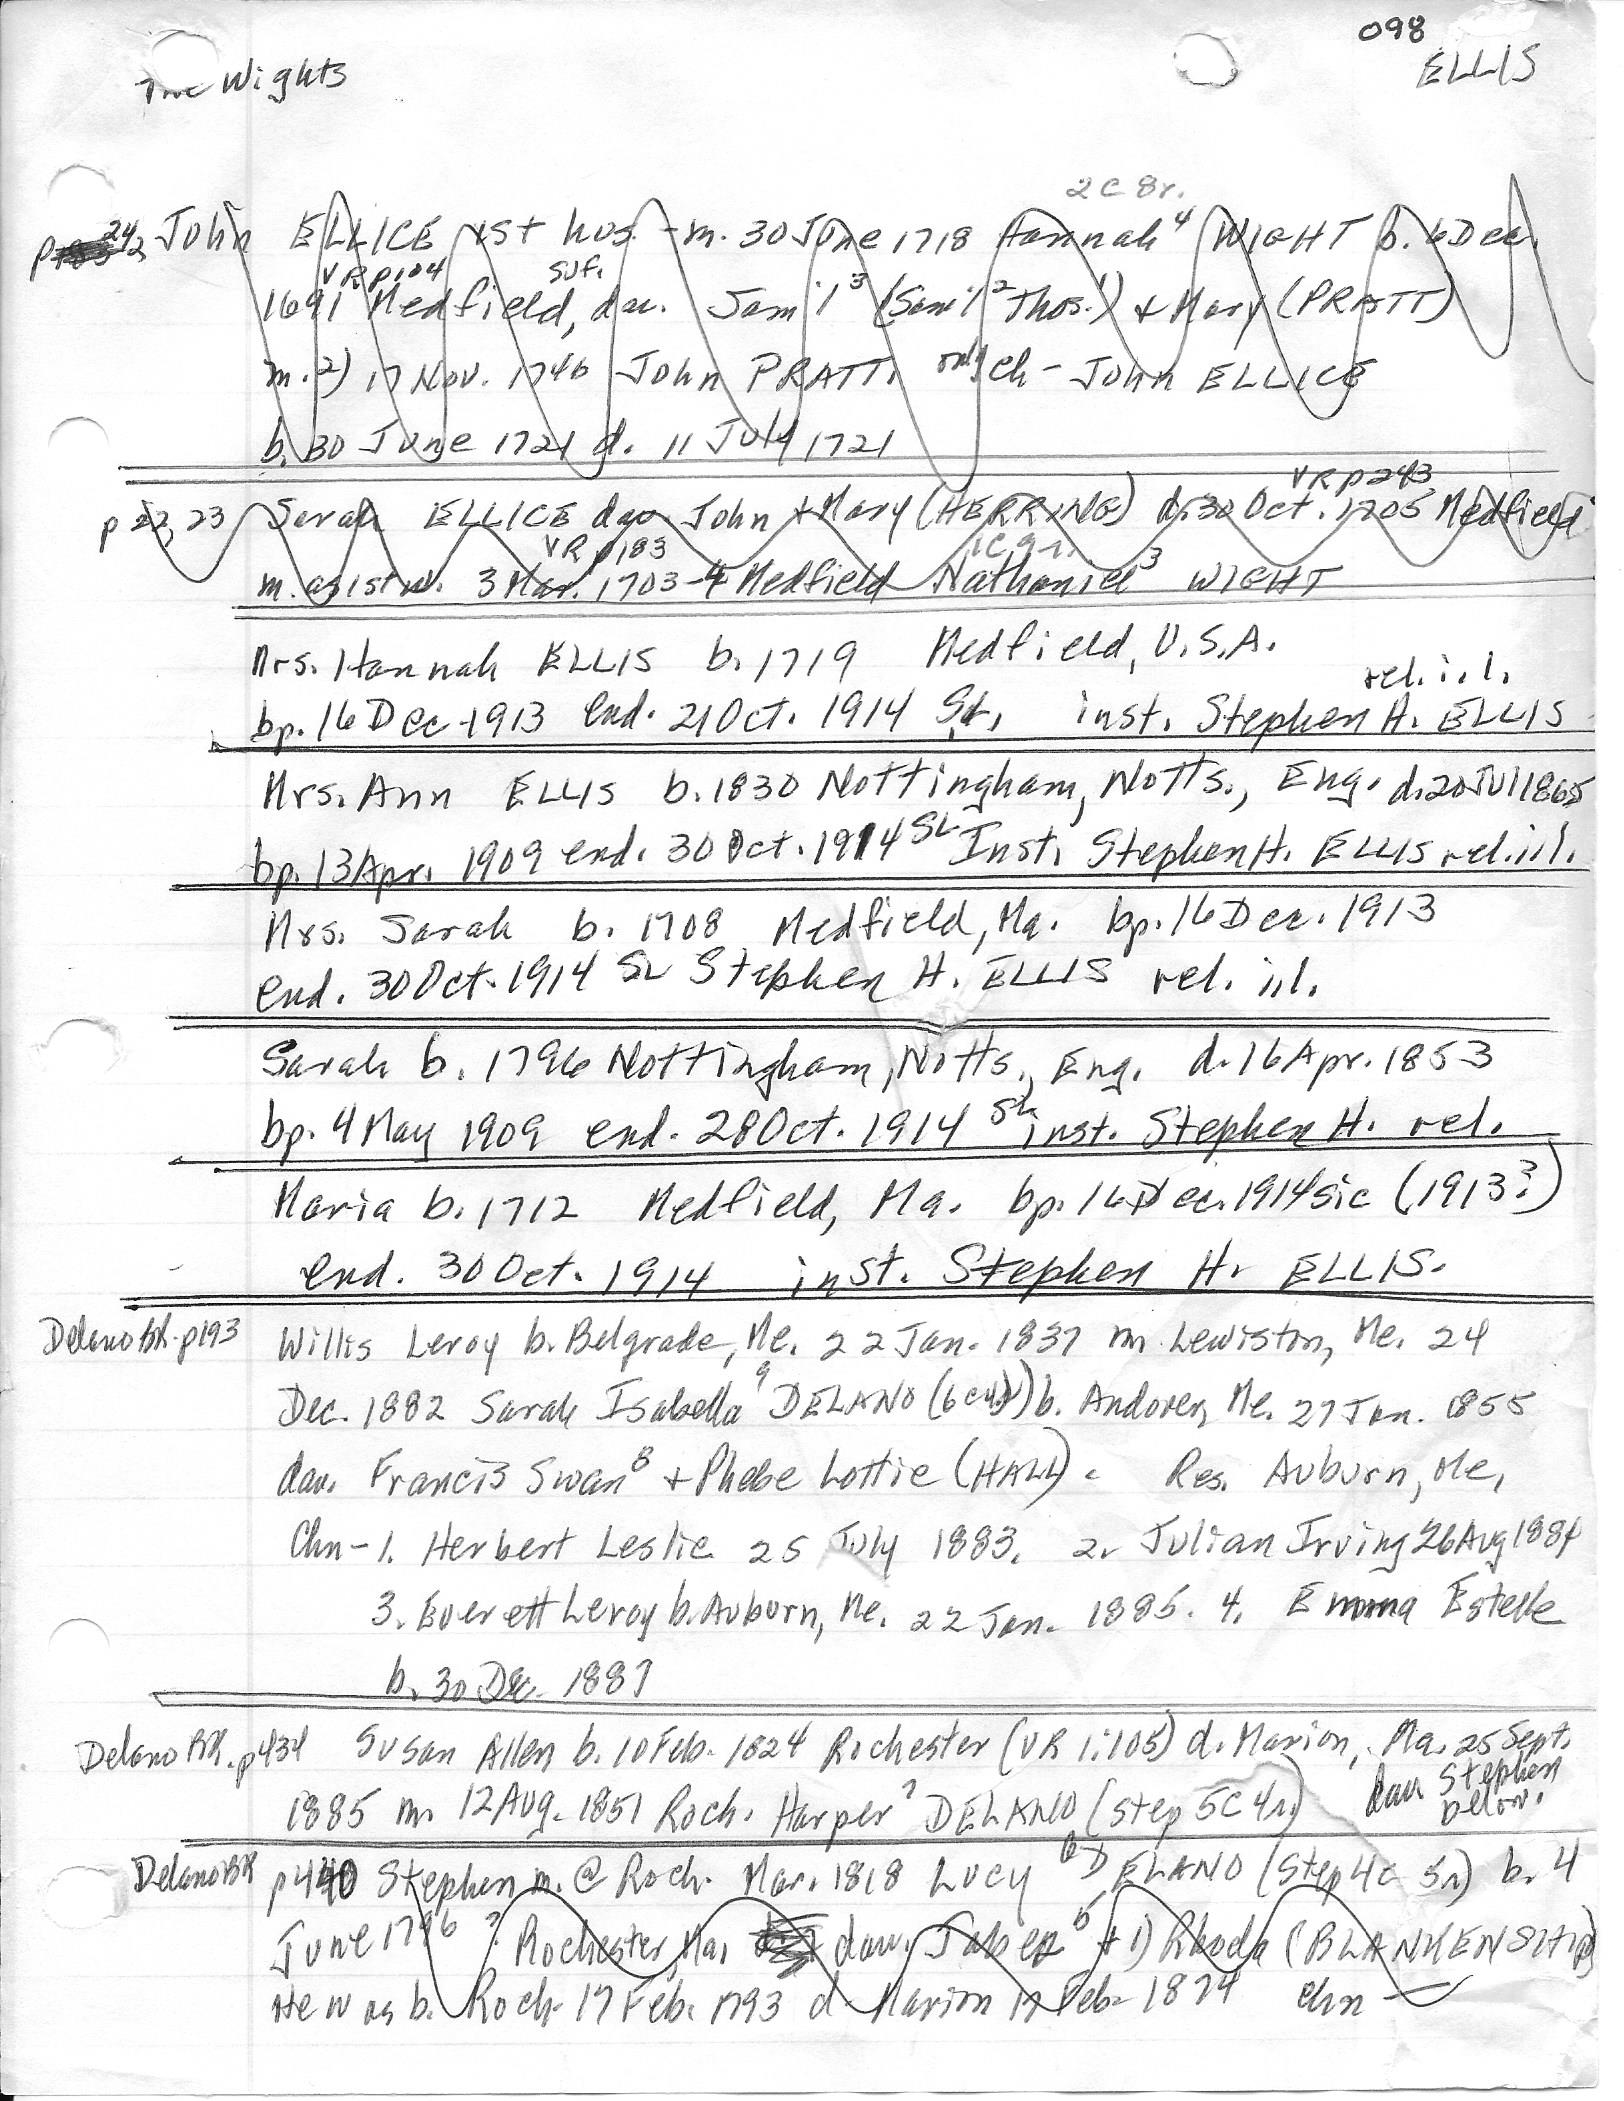 098
The Wights ELLIS
2C 8r.
p 242 John ELLICE 1st hus. - m. 30 June 1718 Hannah⁴ WIGHT b. 6 Dec.
VR p104 suf.
1691 Medfield, dau. Sam'l³ (Sam'l² Thos.¹) & Mary (PRATT)
m. 2) 17 Nov. 1746 John PRATT. only ch - John ELLICE
b. 30 June 1721 d. 11 July 1721
VR p243
p 22, 23 Sarah ELLICE dau John & Mary (HERRING) d. 30 Oct. 1705 Medfield
VR p183 1C 9r.
m. as 1st w. 3 Mar. 1703-4 Medfield Nathaniel³ WIGHT
Mrs. Hannah ELLIS b. 1719 Medfield, U.S.A.
rel. i.l.
bp. 16 Dec 1913 end. 21 Oct. 1914 SL, inst. Stephen H. ELLIS
Mrs. Ann ELLIS b. 1830 Nottingham, Notts., Eng. d. 20 Jul 1865
bp. 13 Apr. 1909 end. 30 Oct. 1914 SL Inst. Stephen H. ELLIS rel. i.l.
Mrs. Sarah b. 1708 Medfield, Ma. bp. 16 Dec. 1913
end. 30 Oct. 1914 SL Stephen H. ELLIS rel. i.l.
Sarah b. 1796 Nottingham, Notts., Eng. d. 16 Apr. 1853
bp. 4 May 1909 end. 28 Oct. 1914 SL inst. Stephen H. rel.
Maria b. 1712 Medfield, Ma. bp. 16 Dec. 1914 sic (1913?)
end. 30 Oct. 1914 inst. Stephen H. ELLIS.
Delano BK. p193 Willis Leroy b. Belgrade, Me. 22 Jan. 1837 m. Lewiston, Me. 24
Dec. 1882 Sarah Isabella⁹ DELANO (6C 4r) b. Andover, Me. 27 Jan. 1855
dau. Francis Swan⁸ & Phebe Lottie (HALL). Res. Auburn, Me,
Chn - 1. Herbert Leslie 25 July 1883. 2. Julian Irving 26 Aug 1884
3. Everett Leroy b. Auburn, Me. 22 Jan. 1885. 4. Emma Estelle
b. 30 Dec. 1887
Delano BK. p434 Susan Allen b. 10 Feb. 1824 Rochester (VR 1:105) d. Marion, Ma. 25 Sept.
1885 m. 12 Aug. 1851 Roch. Harper⁷ DELANO (step 5C 4r.) dau Stephen
below.
Delano BK p440 Stephen m. @ Roch. Mar. 1818 LUCY⁶ DELANO (step 4C 5r) b. 4
June 1796 ? Rochester, Ma. dau. Jabez⁵ & 1) Rhoda (BLANKENSHIP)
He was b. Roch. 17 Feb. 1793 d. Marion 17 Feb. 1874 Chn —